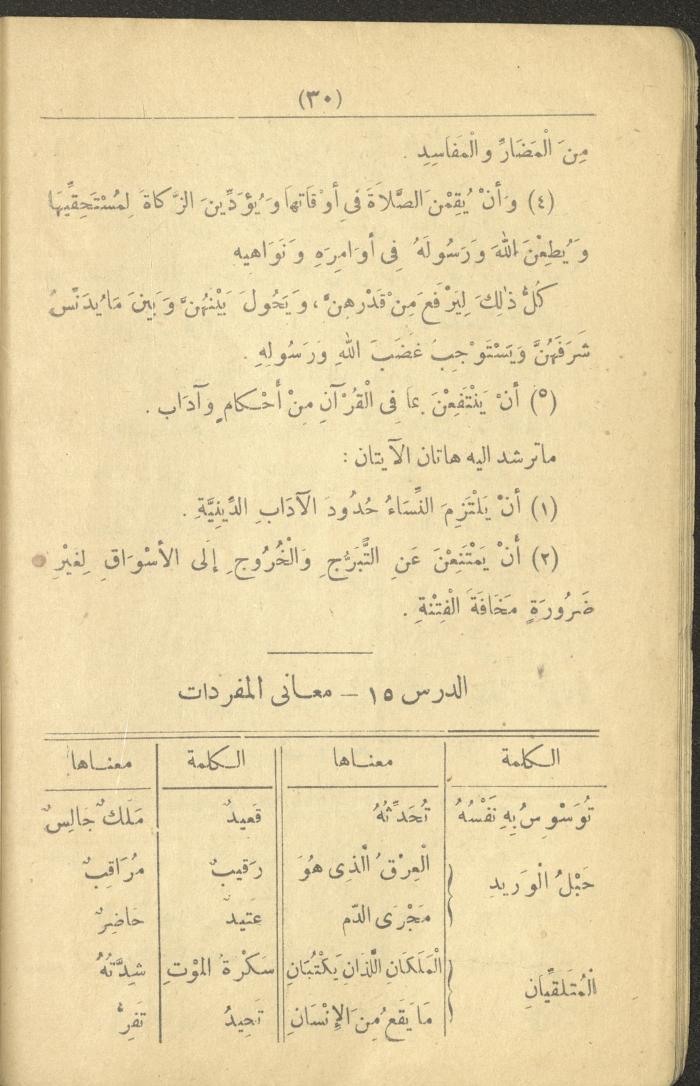 (٣٠)
مِنَ الْمَضَارِّ والْمَفَاسِدِ .
(٤) وَأَنْ يُقِمْنَ الصَّلَاةَ فِي أَوْقَاتِهَا وَيُؤَدِّينَ الزَّكَاةَ لِمُسْتَحِقِّيهَا
وَيُطِعْنَ اللهَ وَرَسُولَهُ فِى أَوَامِرِهِ وَنَوَاهِيهِ
كُلُّ ذٰلِكَ لِيَرْفَعَ مِنْ قَدْرِهِنَّ ، وَيَحُولَ بَيْنَهُنَّ وَبَيْنَ مَا يُدَنِّسُ
شَرَفَهُنَّ وَيَسْتَوْجِبُ غَضَبَ اللهِ وَرَسُولِهِ .
(٥) أَنْ يَنْتَفِعْنَ بِمَا فِى الْقُرْآنِ مِنْ أَحْكَامٍ وَآدَاب .
ماترشد اليه هاتان الآيتان :
(١) أَنْ يَلْتَزِمَ النِّسَاءُ حُدُودَ الآدَابِ الدِّينِيَّةِ .
(٢) أَنْ يَمْتَنِعْنَ عَنِ التَّبَرُّجِ وَالْخُرُوجِ إِلَى الأَسْوَاقِ لِغَيْرِ
ضَرُورَةٍ مَخَافَةَ الْفِتْنَةِ .
الدرس ١٥ – معانى المفردات
الكلمة معناها الكلمة معناها
تُوَسْوِسُ بِهِ نَفْسُهُ تُحَدِّثُهُ قَعِيدٌ مَلَكٌ جَالِسٌ
حَبْلُ الْوَرِيدِ الْعِرْقُ الَّذِى هُوَ رَقِيبٌ مُرَاقِبٌ
مَجْرَى الدَّم عَتِيدٌ حَاضِرٌ
الْمُتَلَقِّيَانِ الْمَلَكَانِ اللَّذَانِ يَكْتُبَانِ سَكْرَةُ الموْتِ شِدَّتُهُ
مَا يَقَعُ مِنَ الإِنْسَانِ تَحِيدُ تَفِرُّ